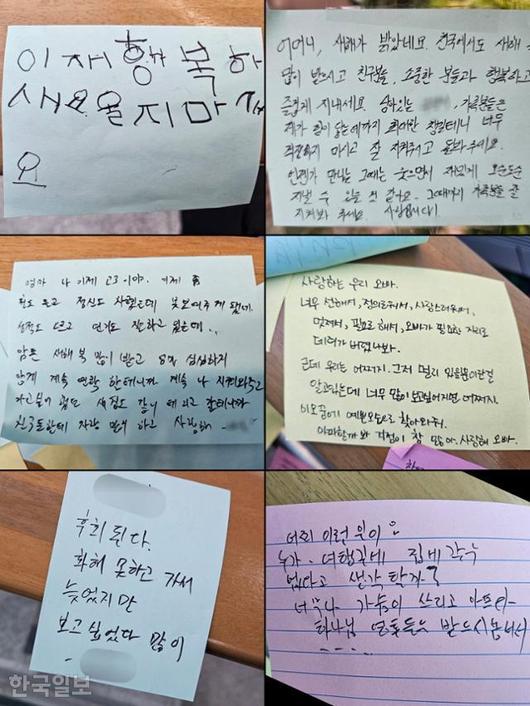 이재 행복하
새요 울지마새
요
어머니, 새해가 밝았네요. 천국에서도 새해 복
많이 받으시고 친구분들, 소중한 분들과 행복하고
즐겁게 지내세요. 남아있는 가족분들은
제가 힘이 닿는데까지 할테니 너무
걱정하지 마시고 잘 지켜봐주시고 돌봐주세요.
언젠가 만나는 그때는 웃으면서 재밌게 오순도순
지낼 수 있을 것 같아요. 그때까지 가족분들 잘
지켜봐 주세요. 사랑합니다!
엄마 나 이제 고3 이야. 이제
돈도 벌고 정신도 차렸는데 못보여주게 됐네.
성적도 오르고 연기도 잘하고 있는데..
암튼 새해 복 많이 받고 심심하지
않게 계속 연락 할테니까 계속 나 지켜봐주고
친구들한테 자랑 많이 하고 사랑해
사랑하는 우리 오빠.
너무 착해서, 사랑스러워서,
멋져서, 필요로 해서, 오빠가 필요한 자리로
데려가 버렸나봐.
근데 우리는 어쩌지. 그저 멀리 있을 뿐이란걸
알고있는데 너무 많이 보고싶어지면 어쩌지.
꿈에 예쁜모습으로 찾아와줘.
걱정이 참 많아. 사랑해 오빠.
후회 된다.
화해 못하고 가서
늦었지만
보고 싶었다 많이
이런 일이
누가 여행길에 집에 갈수
없다고 생각 할까?
너무나 가슴이 쓰리고 아프다
하나님 영혼들을 받으시옵소서
한국일보